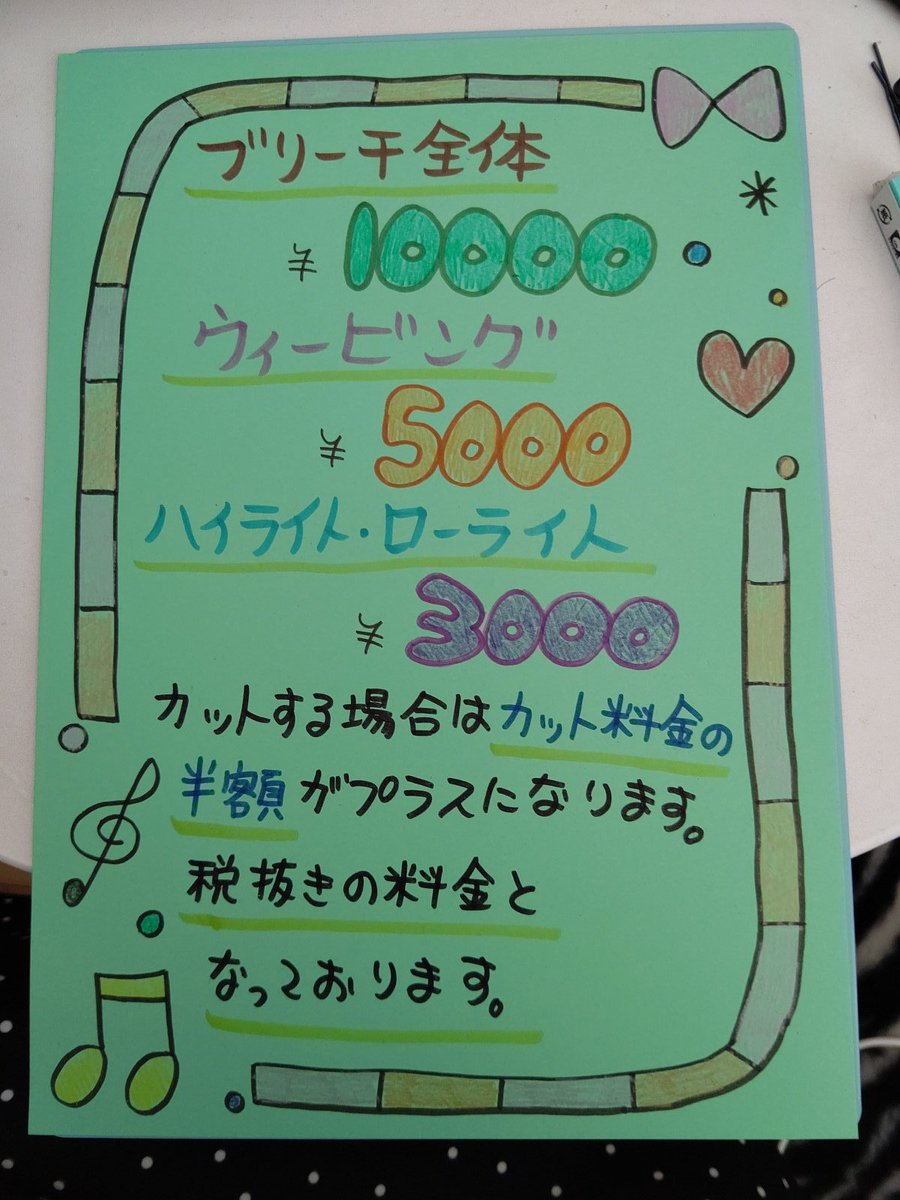 ブリーチ全体
¥10000
ウィービング
¥5000
ハイライト・ローライト
¥3000
カットする場合はカット料金の
半額がプラスになります。
税抜きの料金と
なっております。